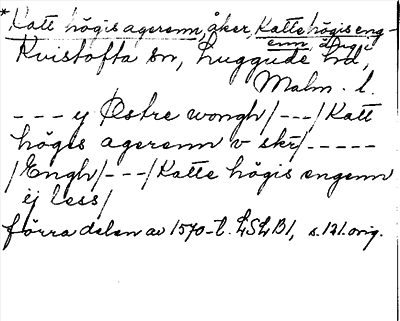 * Katt högis agerenn, åker, Katte högis eng-
enn, äng i
Kvistofta sn, Luggude hd,
Malm. l.
--- y Østre wongh/---/Katt
högis agerenn v skr/-----
/Engh/---/Katte högis engenn
ej less/
förra delen av 1570-t. LSLB1, s. 121. orig.